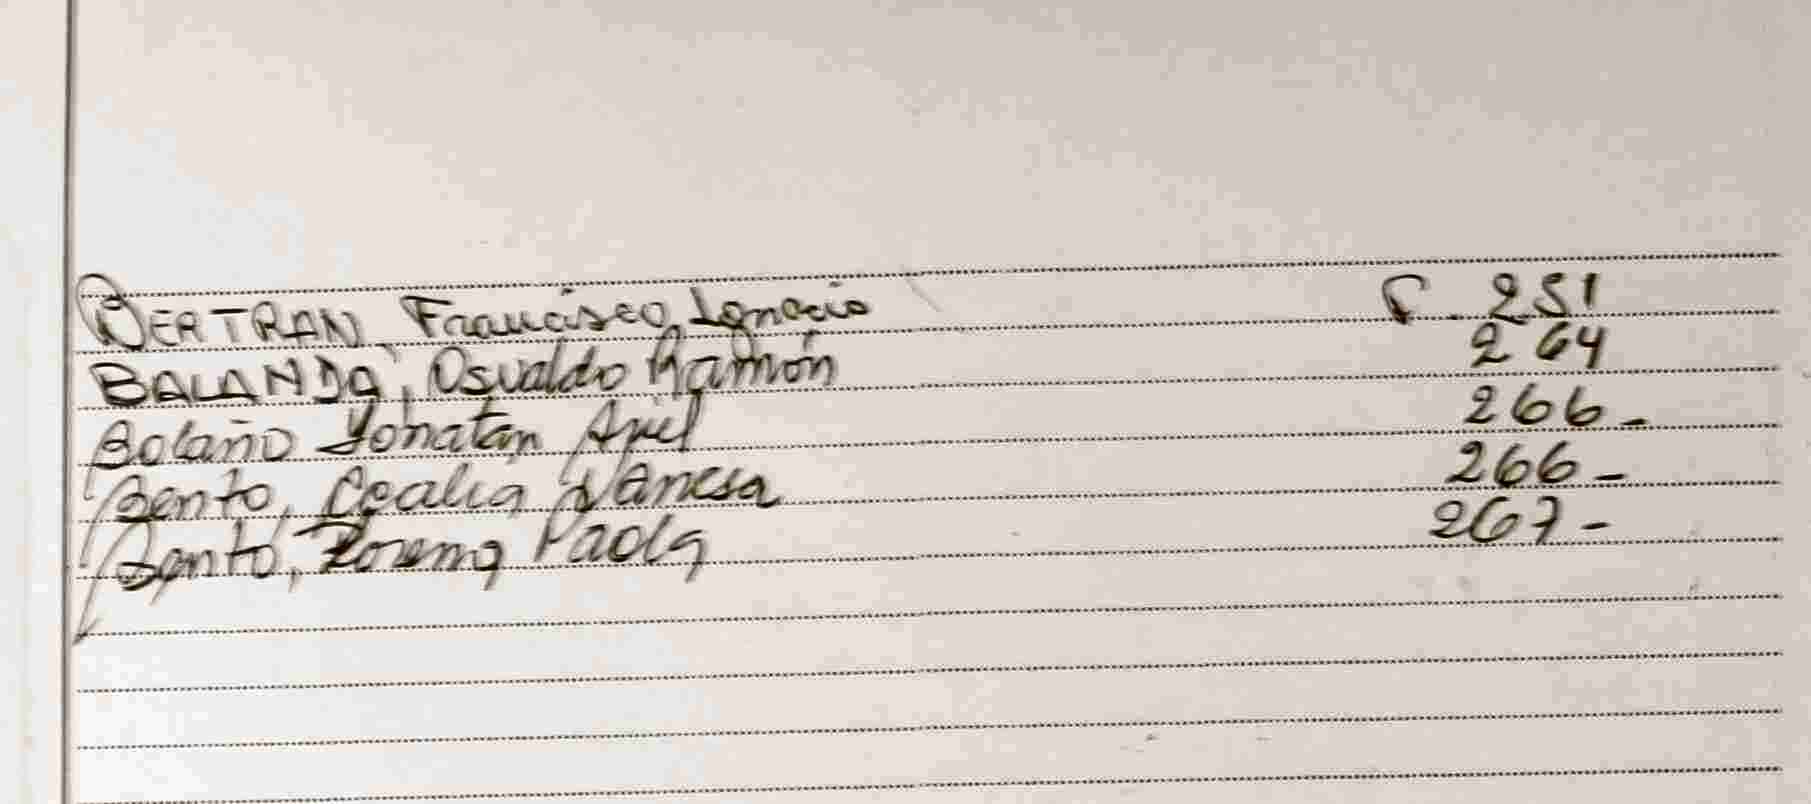 BERTRAN, Francisco Ignacio F. 251
BALANDA, Osvaldo Ramón 264
Bolaño Yonatan Ariel 266-
Bento, Vanesa 266-
Bento, Lorena Paola 267-